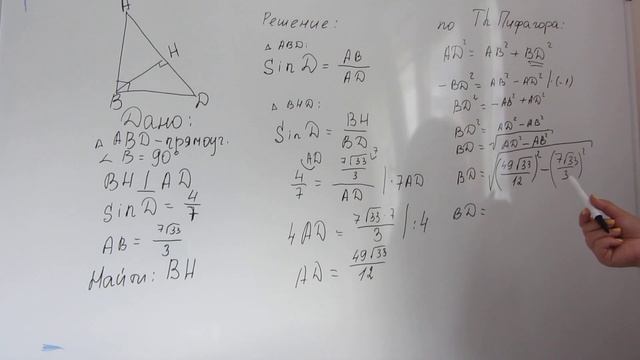 A
H
B
D
Дано:
△ ABD - прямоуг.
∠ B = 90°
BH ⊥ AD
Sin D = 4/7
AB = 7√33/3
Найти: BH
Решение:
△ ABD:
Sin D = AB/AD
△ BHD:
Sin D = BH/BD
4/7 = (7√33/3)/AD | · 7AD
4AD = 7√33 · 7/3 | : 4
AD = 49√33/12
по Th Пифагора:
AD² = AB² + BD²
-BD² = AB² - AD² | · (-1)
BD² = -AB² + AD²
BD² = AD² - AB²
BD = √(AD² - AB²)
BD = √((49√33/12)² - (7√33/3)²)
BD =